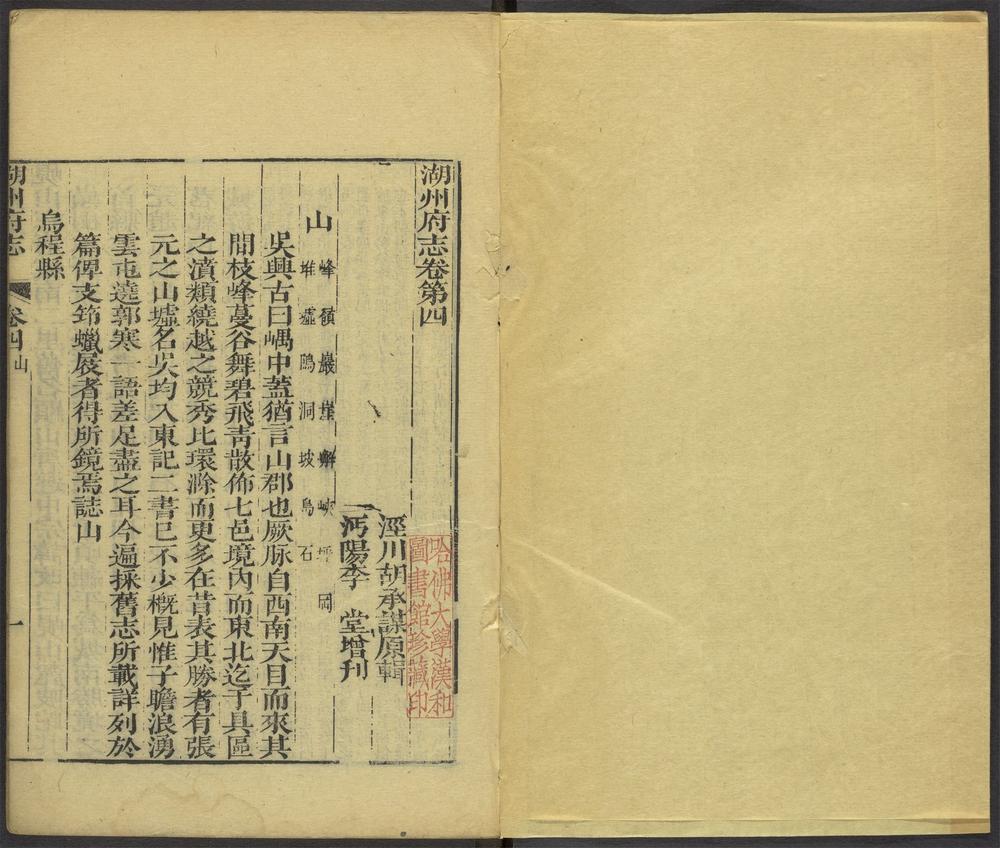 湖州府志卷第四
涇川胡承謀原輯
沔陽李　堂增刊
哈佛大學漢和
圖書館珍藏印
山
峰嶺巖崖㠏峽坪岡
堆墟隝洞坡島石
吳興古曰嵎中蓋猶言山郡也厥脉自西南天目而來其
間枝峰蔓谷舞碧飛靑散佈七邑境內而東北迄于具區
之濆類繞越之競秀比環滁而更多在昔表其勝者有張
元之山墟名吳均入東記二書已不少槪見惟子瞻浪湧
雲屯遶郭寒一語差足盡之耳今遍採舊志所載詳列於
篇俾支筇蠟屐者得所鏡焉誌山
烏程縣
湖州府志
卷四
山
一